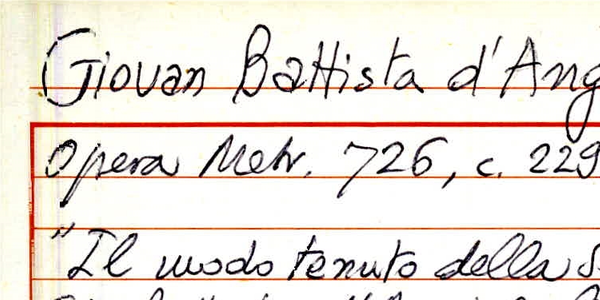 Giovan Battista d'Ang
Opera Metr. 726, c. 229
"Il modo tenuto della S